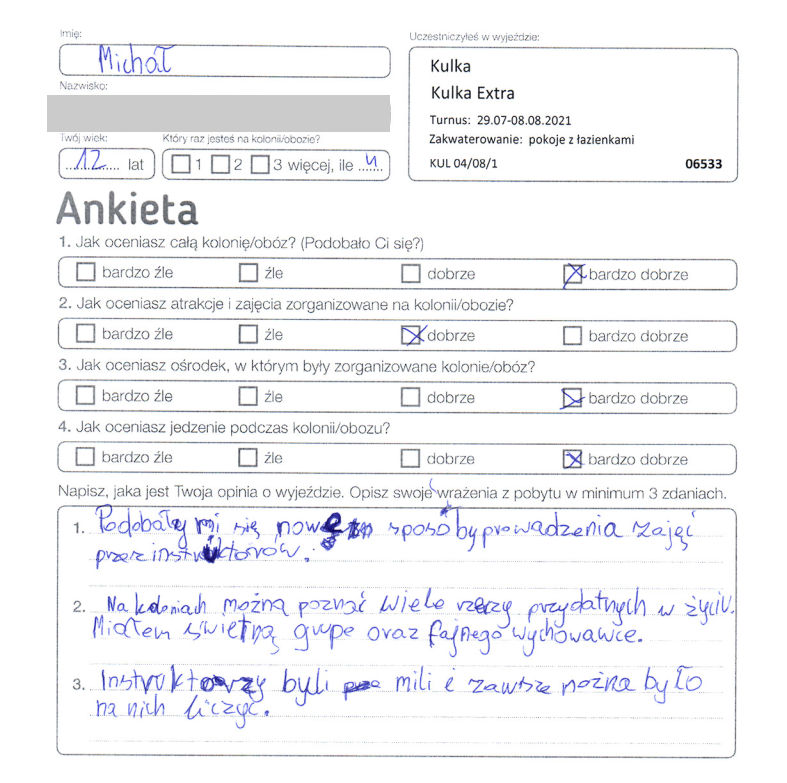 Imię:
Michał
Nazwisko:
Twój wiek:
12 lat
Który raz jesteś na kolonii/obozie?
1 2 3 więcej, ile 4
Uczestniczyłeś w wyjeździe:
Kulka
Kulka Extra
Turnus: 29.07-08.08.2021
Zakwaterowanie: pokoje z łazienkami
KUL 04/08/1 06533
Ankieta
1. Jak oceniasz całą kolonię/obóz? (Podobało Ci się?)
bardzo źle źle dobrze bardzo dobrze
2. Jak oceniasz atrakcje i zajęcia zorganizowane na kolonii/obozie?
bardzo źle źle dobrze bardzo dobrze
3. Jak oceniasz ośrodek, w którym były zorganizowane kolonie/obóz?
bardzo źle źle dobrze bardzo dobrze
4. Jak oceniasz jedzenie podczas kolonii/obozu?
bardzo źle źle dobrze bardzo dobrze
Napisz, jaka jest Twoja opinia o wyjeździe. Opisz swoje wrażenia z pobytu w minimum 3 zdaniach.
1. Podobały mi się nowe sposoby prowadzenia zajęć
przez instruktorów.
2. Na koloniach można poznać wiele rzeczy przydatnych w życiu.
Miałem świetną grupe oraz fajnego wychowawce.
3. Instruktorzy byli mili i zawsze można było
na nich liczyć.